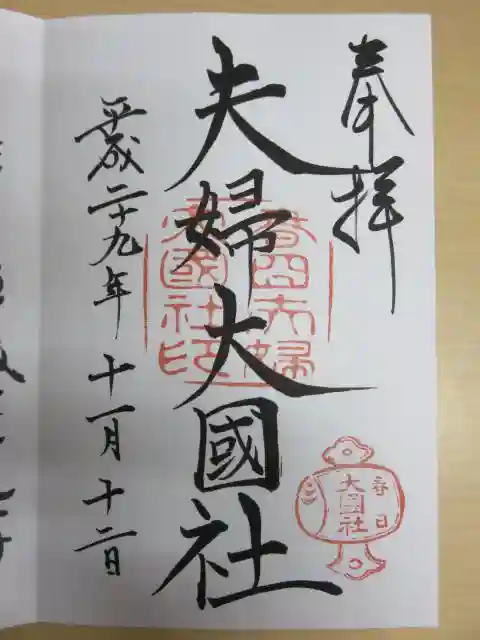 奉拝
夫婦大國社
春日夫婦
大國社印
春日
大国社
平成二十九年十一月十二日